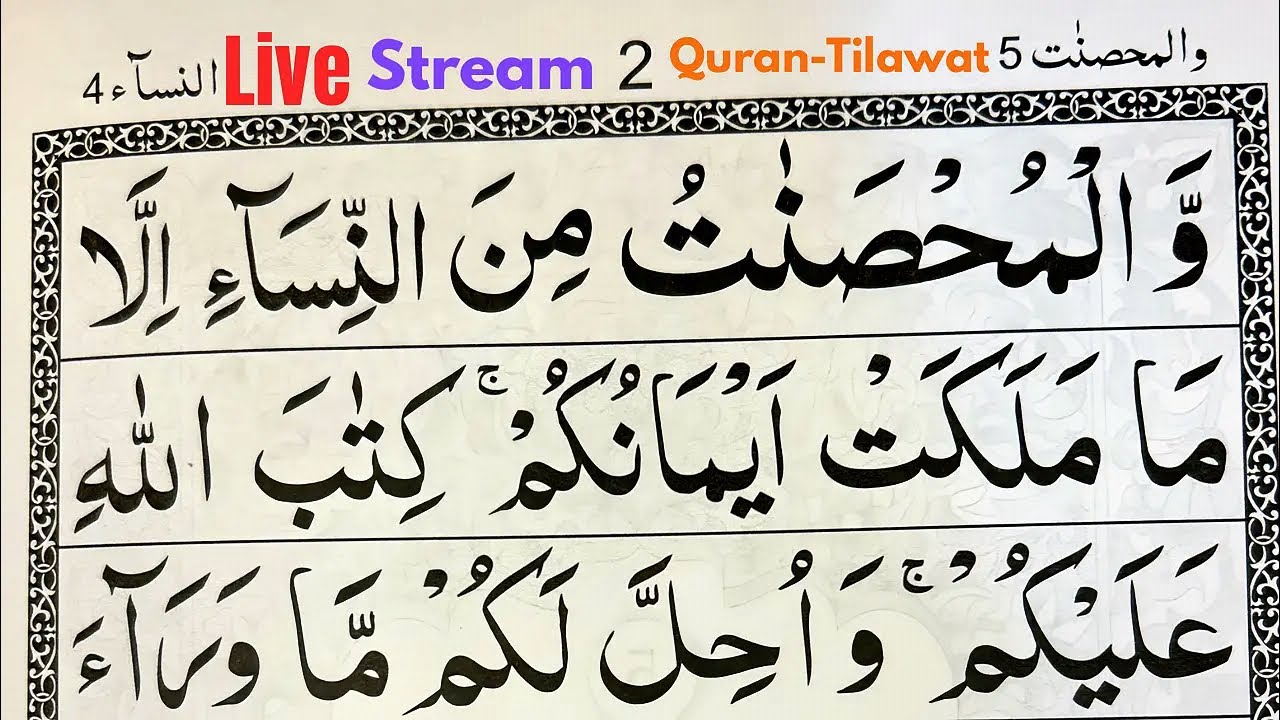 النسآء 4 Live Stream 2 Quran-Tilawat والمحصنٰت 5
وَّالْمُحْصَنٰتُ مِنَ النِّسَآءِ اِلَّا
مَا مَلَكَتْ اَيْمَانُكُمْ ۚ كِتٰبَ اللّٰهِ
عَلَيْكُمْ ۚ وَاُحِلَّ لَكُمْ مَّا وَرَآءَ